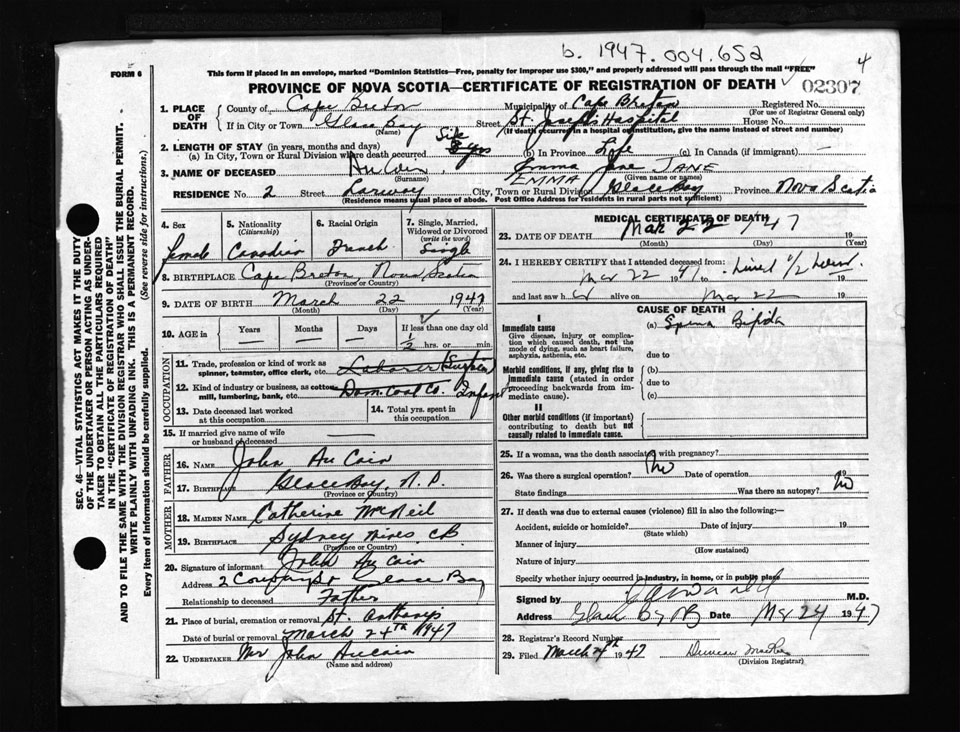 b. 1947.004.652
4
FORM 6
This form if placed in an envelope, marked "Dominion Statistics—Free, penalty for improper use $300," and properly addressed will pass through the mail "FREE"
PROVINCE OF NOVA SCOTIA—CERTIFICATE OF REGISTRATION OF DEATH
02307
1. PLACE OF DEATH { County of Cape Breton Municipality of Cape Breton Registered No.
(For use of Registrar General only)
If in City or Town Glace Bay Street St. Joseph's Hospital House No.
(Name) (If death occurred in a hospital or institution, give the name instead of street and number)
2. LENGTH OF STAY (in years, months and days)
(a) In City, Town or Rural Division where death occurred (b) In Province Life (c) In Canada (if immigrant) —
3. NAME OF DECEASED Au Coin Emma Jane JANE
EMMA
(Surname) (Given name or names)
RESIDENCE No. 2 Street City, Town or Rural Division Glace Bay Province Nova Scotia
(Residence means usual place of abode. Post Office Address for residents in rural parts not sufficient)
4. Sex female
5. Nationality (Citizenship) Canadian
6. Racial Origin French
7. Single, Married, Widowed or Divorced (write the word) Single
8. BIRTHPLACE Cape Breton Nova Scotia
(Province or Country)
9. DATE OF BIRTH March 22 1947
(Month) (Day) (Year)
10. AGE in { Years Months Days If less than one day old
— — — 1/2 hrs. or min.
OCCUPATION
11. Trade, profession or kind of work as spinner, teamster, office clerk, etc. Laborer
12. Kind of industry or business, as cotton mill, lumbering, bank, etc. Dom. Coal Co. Infant
13. Date deceased last worked at this occupation
14. Total yrs. spent in this occupation
15. If married give name of wife or husband of deceased —
FATHER
16. NAME John Au Coin
17. BIRTHPLACE Glace Bay, N.S.
(Province or Country)
MOTHER
18. MAIDEN NAME Catherine McNeil
19. BIRTHPLACE Sydney Mines CB
(Province or Country)
20. Signature of informant John Au Coin
Address 2 Glace Bay
Relationship to deceased Father
21. Place of burial, cremation or removal St. Anthonys
Date of burial or removal March 24th 1947
22. UNDERTAKER Mr John Aucoin
(Name and address)
MEDICAL CERTIFICATE OF DEATH
23. DATE OF DEATH Mar 22 /47 19
(Month) (Day) (Year)
24. I HEREBY CERTIFY that I attended deceased from:
Mar 22 1947 to Lived 1/2 hour 19
and last saw her alive on Mar 22 19
CAUSE OF DEATH
I
Immediate cause
Give disease, injury or complication which caused death, not the mode of dying, such as heart failure, asphyxia, asthenia, etc.
(a) Spina Bifida
due to
Morbid conditions, if any, giving rise to immediate cause (stated in order proceeding backwards from immediate cause).
(b)
due to
(c)
II
Other morbid conditions (if important) contributing to death but not causally related to immediate cause.
25. If a woman, was the death associated with pregnancy?
26. Was there a surgical operation? No Date of operation 19
State findings Was there an autopsy? No
27. If death was due to external causes (violence) fill in also the following:—
Accident, suicide or homicide? Date of injury 19
(State which)
Manner of injury
(How sustained)
Nature of injury
Specify whether injury occurred in industry, in home, or in public place
Signed by M.D.
Address Glace Bay Date Mar 24 1947
28. Registrar's Record Number
29. Filed March 24th 1947 Duncan
(Division Registrar)
SEC. 46—VITAL STATISTICS ACT MAKES IT THE DUTY
OF THE UNDERTAKER OR PERSON ACTING AS UNDER-
TAKER TO OBTAIN ALL THE PARTICULARS REQUIRED
IN THE "CERTIFICATE OF REGISTRATION OF DEATH"
AND TO FILE THE SAME WITH THE DIVISION REGISTRAR WHO SHALL ISSUE THE BURIAL PERMIT.
WRITE PLAINLY WITH UNFADING INK. THIS IS A PERMANENT RECORD.
Every item of information should be carefully supplied. (See reverse side for instructions.)